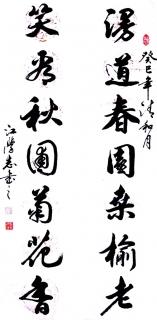 漫道春園桑榆老
癸巳年清和月
笑看秋圃菊花香
江學志書